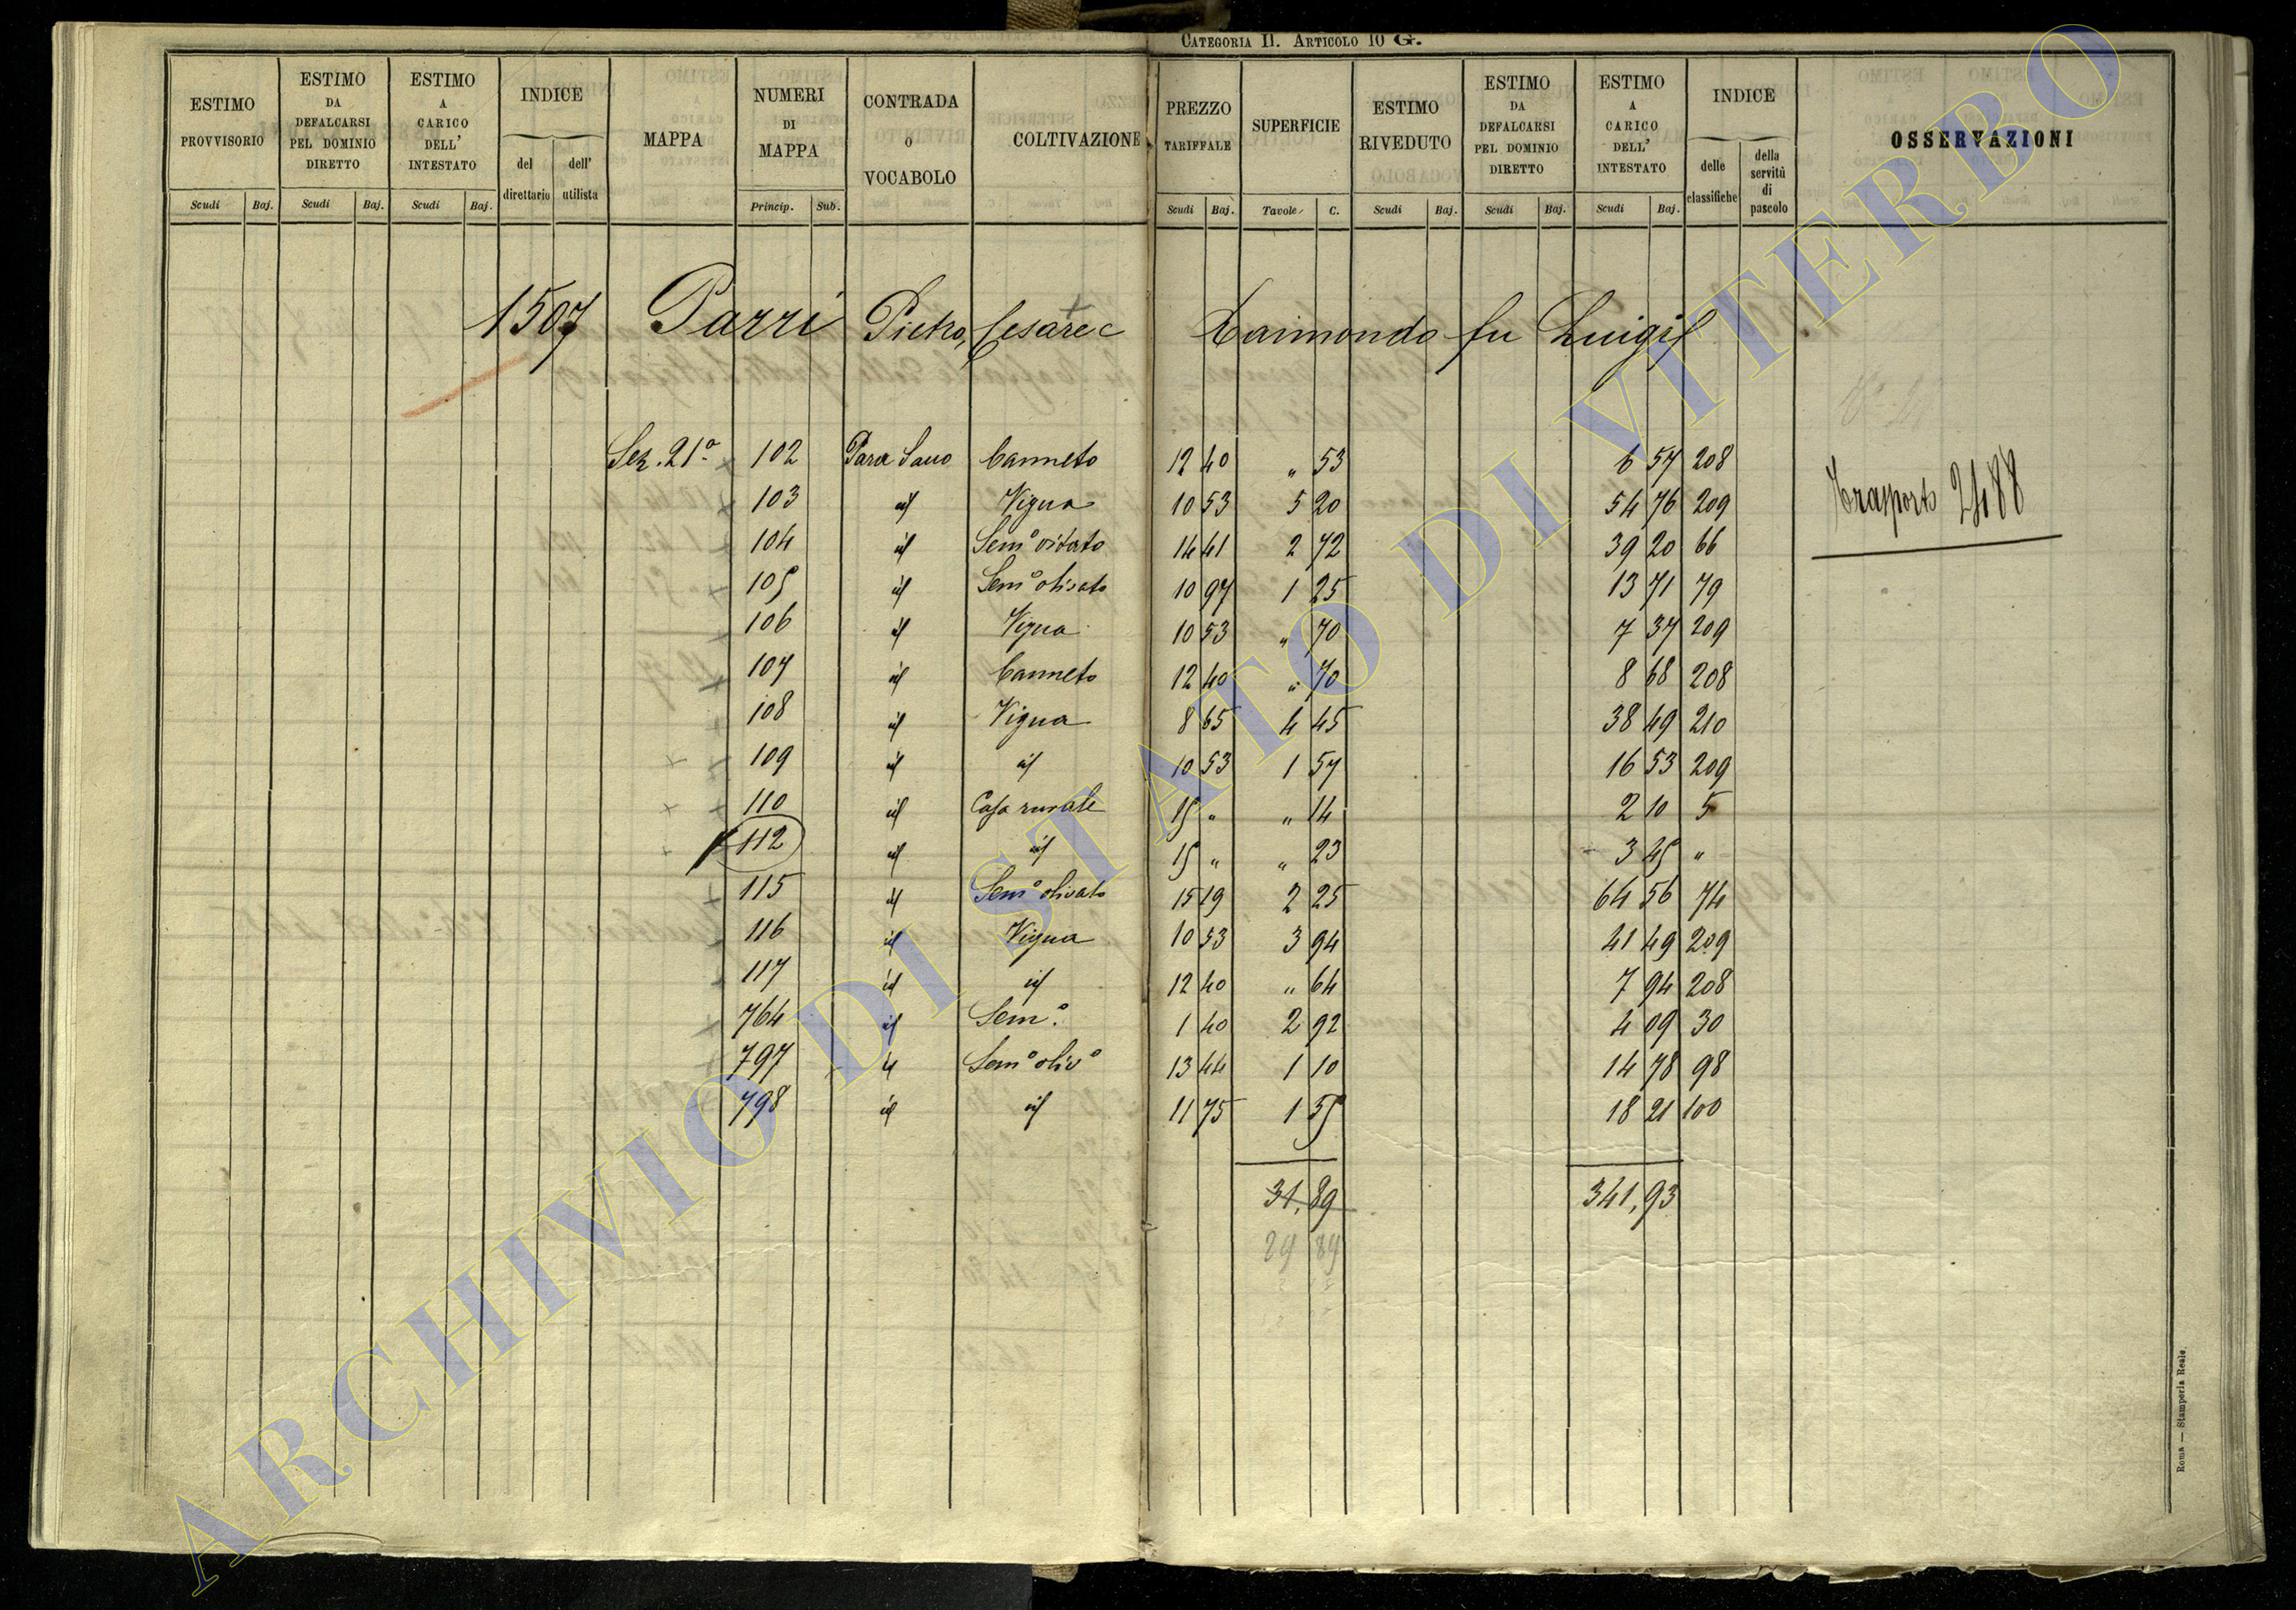 CATEGORIA II. ARTICOLO 10 G.
ESTIMO PROVVISORIO
ESTIMO DA DEFALCARSI PEL DOMINIO DIRETTO
ESTIMO A CARICO DELL' INTESTATO
INDICE
del direttario
dell' utilista
MAPPA
NUMERI DI MAPPA
CONTRADA O VOCABOLO
COLTIVAZIONE
PREZZO TARIFFALE
SUPERFICIE
ESTIMO RIVEDUTO
ESTIMO DA DEFALCARSI PEL DOMINIO DIRETTO
ESTIMO A CARICO DELL' INTESTATO
INDICE
delle classifiche
della servitù di pascolo
OSSERVAZIONI
Scudi Baj. Scudi Baj. Scudi Baj. Princip. Sub. Scudi Baj. Tavole C. Scudi Baj. Scudi Baj. Scudi Baj.
1507 Parri Pietro, Cesare e Raimondo fu Luigi
Sez. 21a 102 Canneto 12 40 " 53 6 57 208
103 id Vigna 10 53 5 20 54 76 209
Trasporto 2488
104 id Semo vitato 14 41 2 72 39 20 66
105 id Semo olivato 10 97 1 25 13 71 79
106 id Vigna 10 53 " 70 7 37 209
107 id Canneto 12 40 " 70 8 68 208
108 id Vigna 8 65 4 45 38 49 210
109 id id 10 53 1 57 16 53 209
110 id Casa rurale 15 " " 14 2 10 5
112 id id 15 " " 23 3 45 "
115 id Semo olivato 15 19 2 25 64 56 74
116 id Vigna 10 53 3 94 41 49 209
117 id id 12 40 " 64 7 94 208
764 id Semo. 1 40 2 92 4 09 30
797 id Semo olivo 13 44 1 10 14 78 98
798 id id 11 75 1 55 18 21 100
31,89 341,93
29 89
Roma — Stamperia Reale.
ARCHIVIO DI STATO DI VITERBO